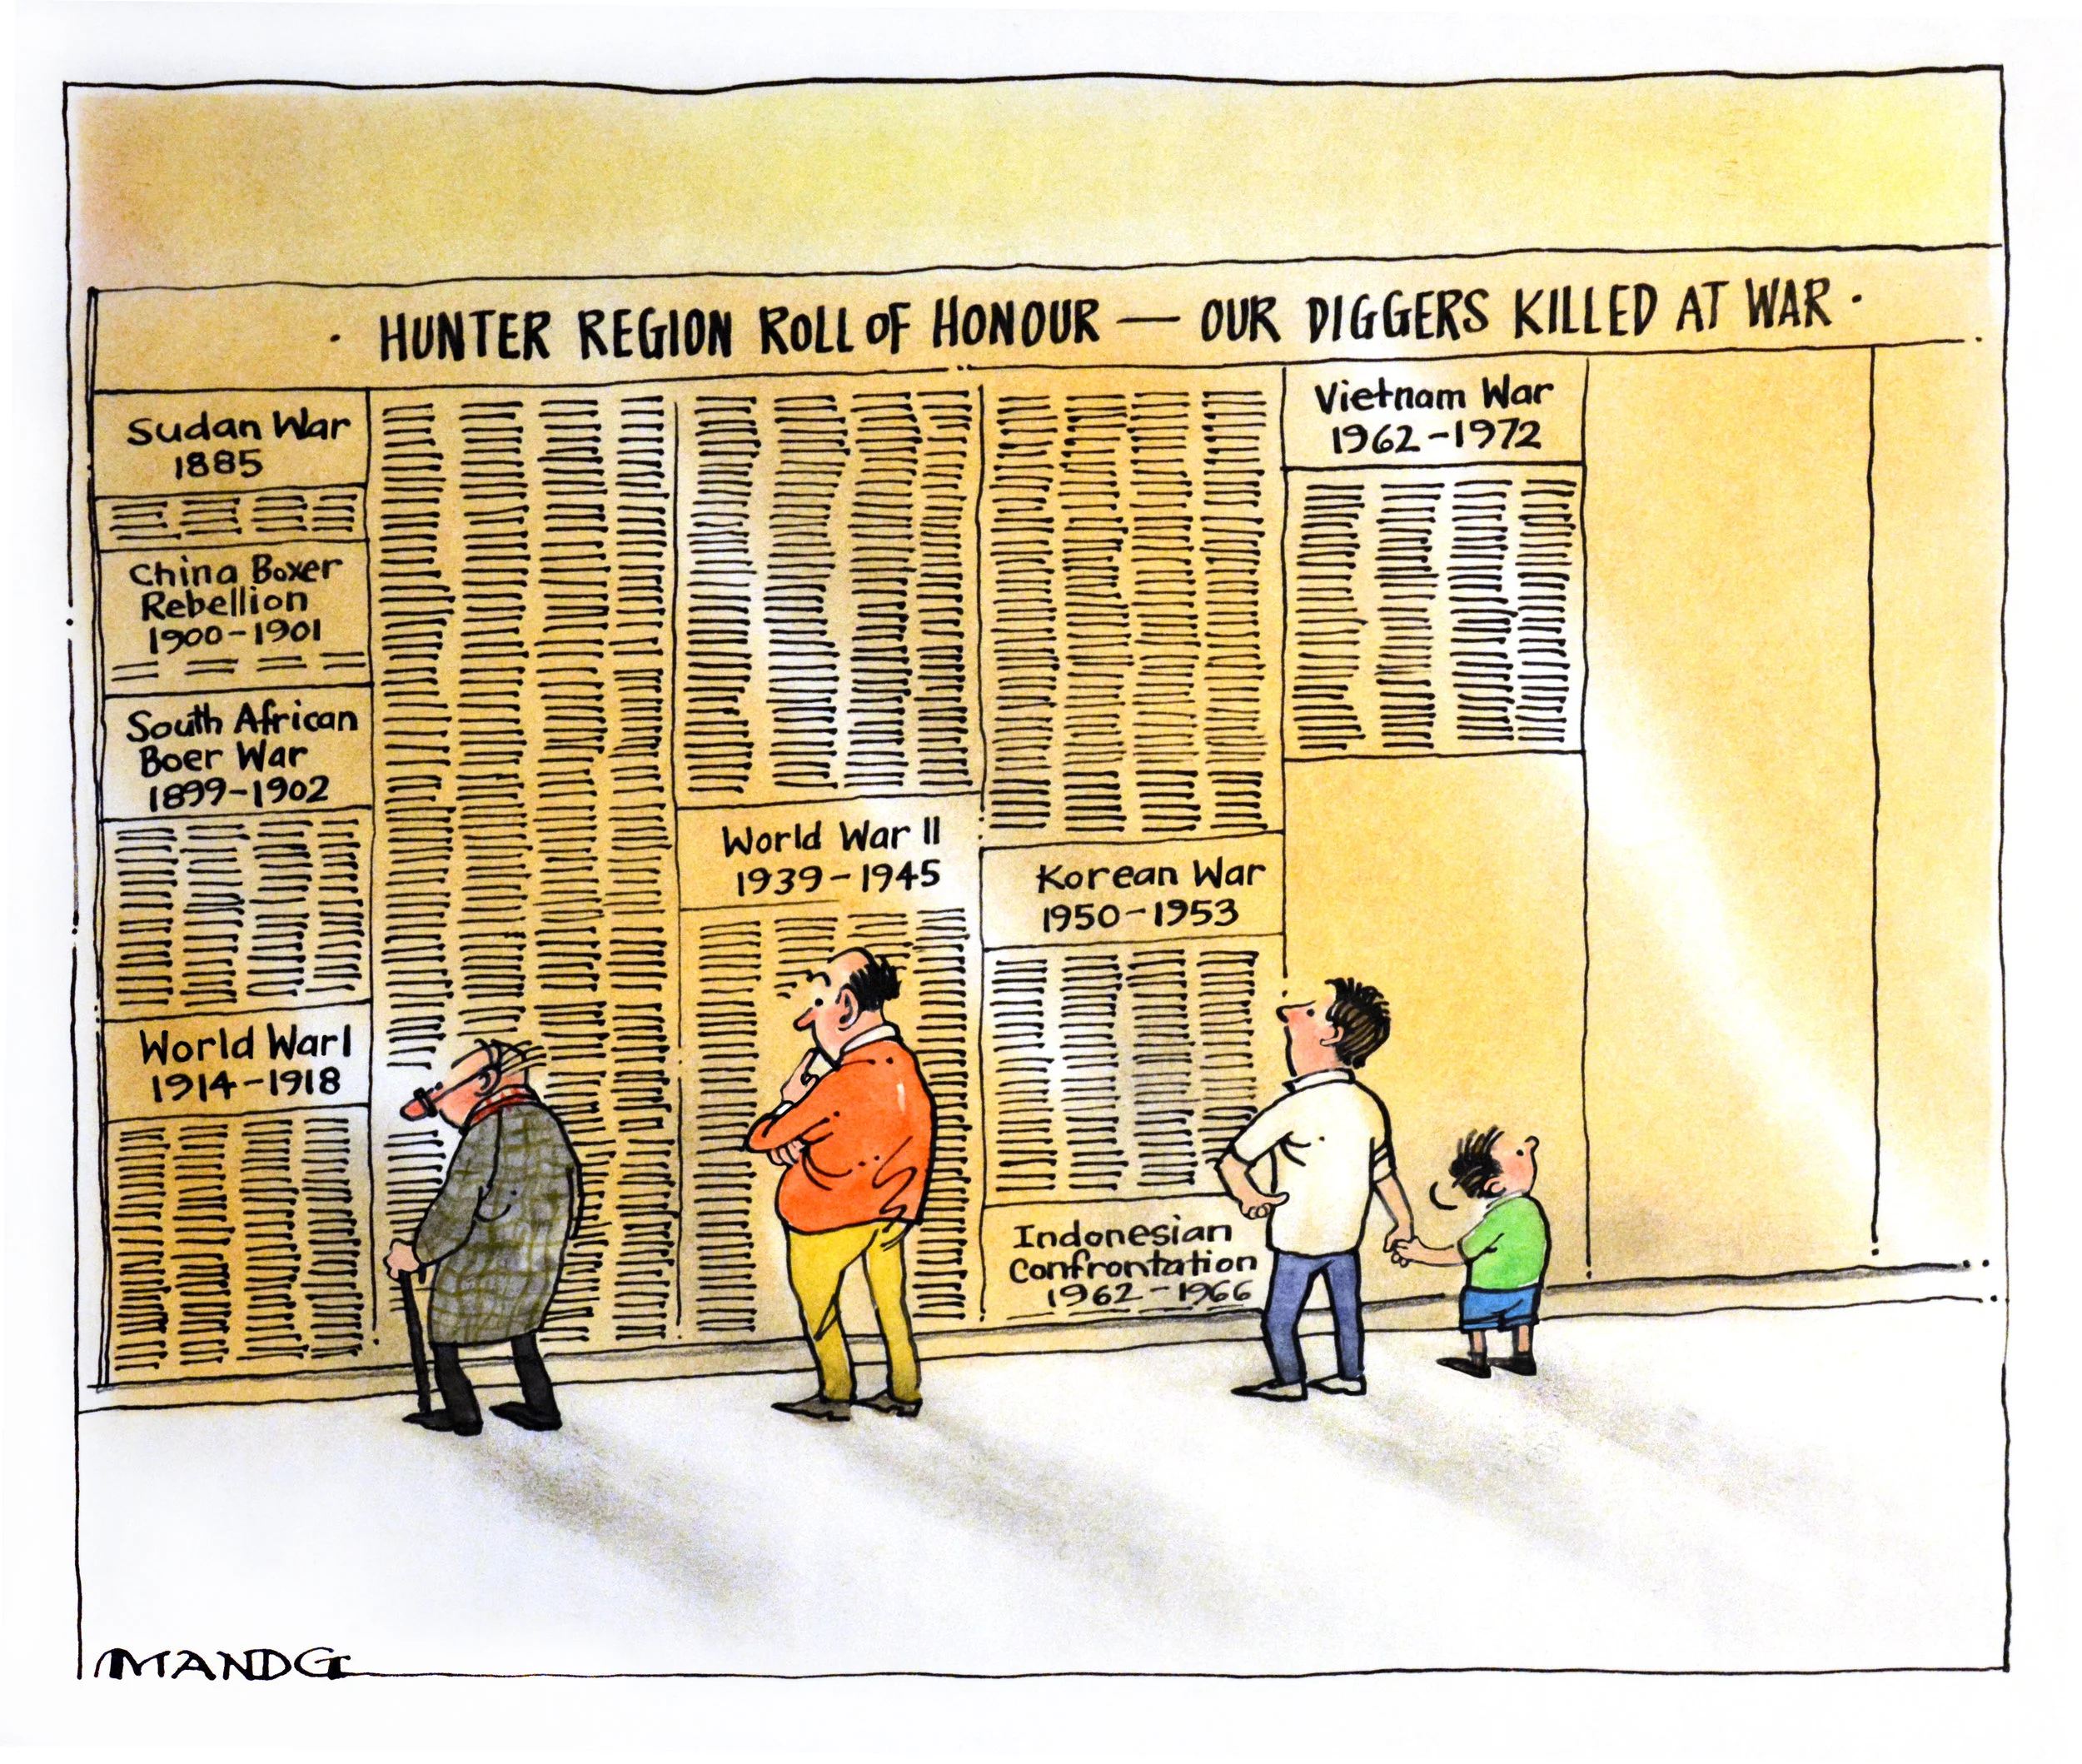 · HUNTER REGION ROLL OF HONOUR — OUR DIGGERS KILLED AT WAR ·
Sudan War
1885
China Boxer
Rebellion
1900-1901
South African
Boer War
1899-1902
World War I
1914-1918
World War II
1939-1945
Korean War
1950-1953
Indonesian
Confrontation
1962-1966
Vietnam War
1962-1972
MANDG